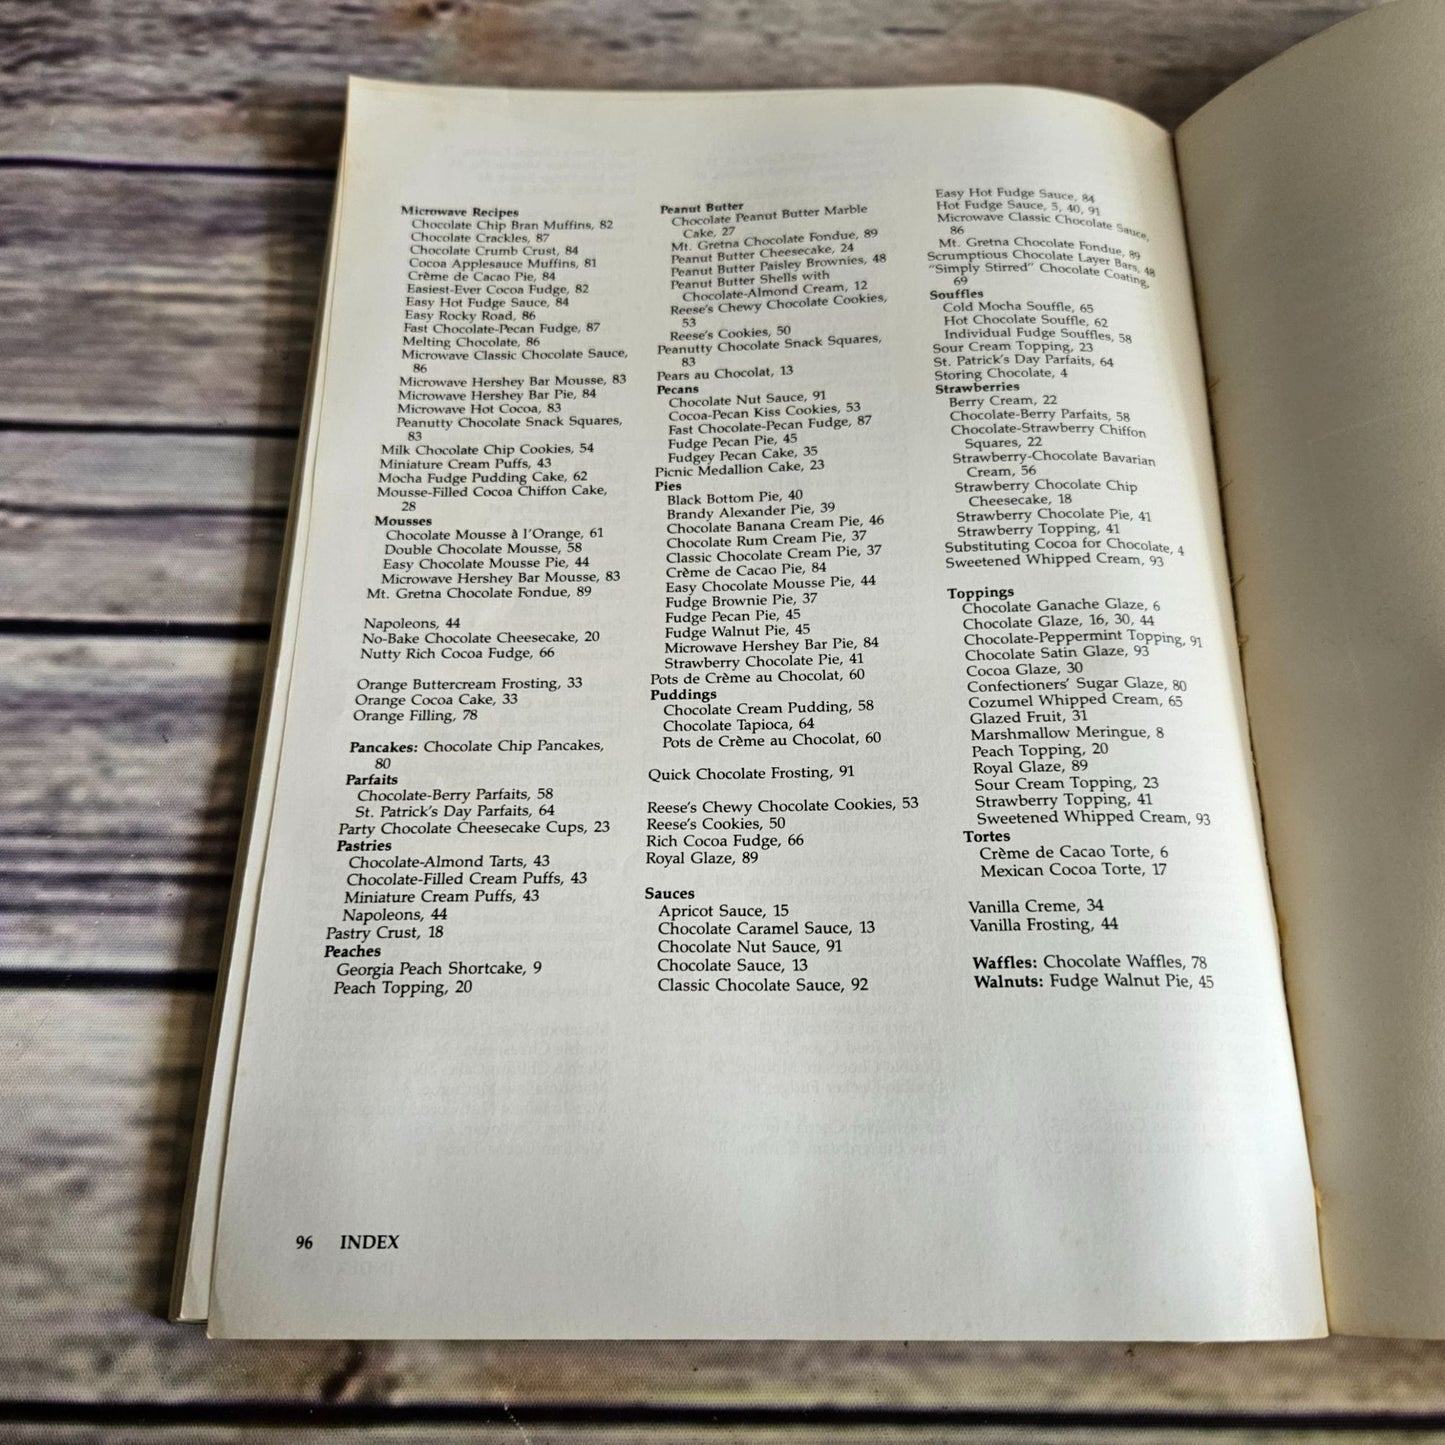 Microwave Recipes
Chocolate Chip Bran Muffins, 82
Chocolate Crackles, 87
Chocolate Crumb Crust, 84
Cocoa Applesauce Muffins, 81
Crème de Cacao Pie, 84
Easiest-Ever Cocoa Fudge, 82
Easy Hot Fudge Sauce, 84
Easy Rocky Road, 86
Fast Chocolate-Pecan Fudge, 87
Melting Chocolate, 86
Microwave Classic Chocolate Sauce,
86
Microwave Hershey Bar Mousse, 83
Microwave Hershey Bar Pie, 84
Microwave Hot Cocoa, 83
Peanutty Chocolate Snack Squares,
83
Milk Chocolate Chip Cookies, 54
Miniature Cream Puffs, 43
Mocha Fudge Pudding Cake, 62
Mousse-Filled Cocoa Chiffon Cake,
28
Mousses
Chocolate Mousse à l'Orange, 61
Double Chocolate Mousse, 58
Easy Chocolate Mousse Pie, 44
Microwave Hershey Bar Mousse, 83
Mt. Gretna Chocolate Fondue, 89
Napoleons, 44
No-Bake Chocolate Cheesecake, 20
Nutty Rich Cocoa Fudge, 66
Orange Buttercream Frosting, 33
Orange Cocoa Cake, 33
Orange Filling, 78
Pancakes: Chocolate Chip Pancakes,
80
Parfaits
Chocolate-Berry Parfaits, 58
St. Patrick's Day Parfaits, 64
Party Chocolate Cheesecake Cups, 23
Pastries
Chocolate-Almond Tarts, 43
Chocolate-Filled Cream Puffs, 43
Miniature Cream Puffs, 43
Napoleons, 44
Pastry Crust, 18
Peaches
Georgia Peach Shortcake, 9
Peach Topping, 20
Peanut Butter
Chocolate Peanut Butter Marble
Cake, 27
Mt. Gretna Chocolate Fondue, 89
Peanut Butter Cheesecake, 24
Peanut Butter Paisley Brownies, 48
Peanut Butter Shells with
Chocolate-Almond Cream, 12
Reese's Chewy Chocolate Cookies,
53
Reese's Cookies, 50
Peanutty Chocolate Snack Squares,
83
Pears au Chocolat, 13
Pecans
Chocolate Nut Sauce, 91
Cocoa-Pecan Kiss Cookies, 53
Fast Chocolate-Pecan Fudge, 87
Fudge Pecan Pie, 45
Fudgey Pecan Cake, 35
Picnic Medallion Cake, 23
Pies
Black Bottom Pie, 40
Brandy Alexander Pie, 39
Chocolate Banana Cream Pie, 46
Chocolate Rum Cream Pie, 37
Classic Chocolate Cream Pie, 37
Crème de Cacao Pie, 84
Easy Chocolate Mousse Pie, 44
Fudge Brownie Pie, 37
Fudge Pecan Pie, 45
Fudge Walnut Pie, 45
Microwave Hershey Bar Pie, 84
Strawberry Chocolate Pie, 41
Pots de Crème au Chocolat, 60
Puddings
Chocolate Cream Pudding, 58
Chocolate Tapioca, 64
Pots de Crème au Chocolat, 60
Quick Chocolate Frosting, 91
Reese's Chewy Chocolate Cookies, 53
Reese's Cookies, 50
Rich Cocoa Fudge, 66
Royal Glaze, 89
Sauces
Apricot Sauce, 15
Chocolate Caramel Sauce, 13
Chocolate Nut Sauce, 91
Chocolate Sauce, 13
Classic Chocolate Sauce, 92
Easy Hot Fudge Sauce, 84
Hot Fudge Sauce, 5, 40, 91
Microwave Classic Chocolate Sauce,
86
Mt. Gretna Chocolate Fondue, 89
Scrumptious Chocolate Layer Bars, 48
"Simply Stirred" Chocolate Coating,
69
Souffles
Cold Mocha Souffle, 65
Hot Chocolate Souffle, 62
Individual Fudge Souffles, 58
Sour Cream Topping, 23
St. Patrick's Day Parfaits, 64
Storing Chocolate, 4
Strawberries
Berry Cream, 22
Chocolate-Berry Parfaits, 58
Chocolate-Strawberry Chiffon
Squares, 22
Strawberry-Chocolate Bavarian
Cream, 56
Strawberry Chocolate Chip
Cheesecake, 18
Strawberry Chocolate Pie, 41
Strawberry Topping, 41
Substituting Cocoa for Chocolate, 4
Sweetened Whipped Cream, 93
Toppings
Chocolate Ganache Glaze, 6
Chocolate Glaze, 16, 30, 44
Chocolate-Peppermint Topping, 91
Chocolate Satin Glaze, 93
Cocoa Glaze, 30
Confectioners' Sugar Glaze, 80
Cozumel Whipped Cream, 65
Glazed Fruit, 31
Marshmallow Meringue, 8
Peach Topping, 20
Royal Glaze, 89
Sour Cream Topping, 23
Strawberry Topping, 41
Sweetened Whipped Cream, 93
Tortes
Crème de Cacao Torte, 6
Mexican Cocoa Torte, 17
Vanilla Creme, 34
Vanilla Frosting, 44
Waffles: Chocolate Waffles, 78
Walnuts: Fudge Walnut Pie, 45
96 INDEX